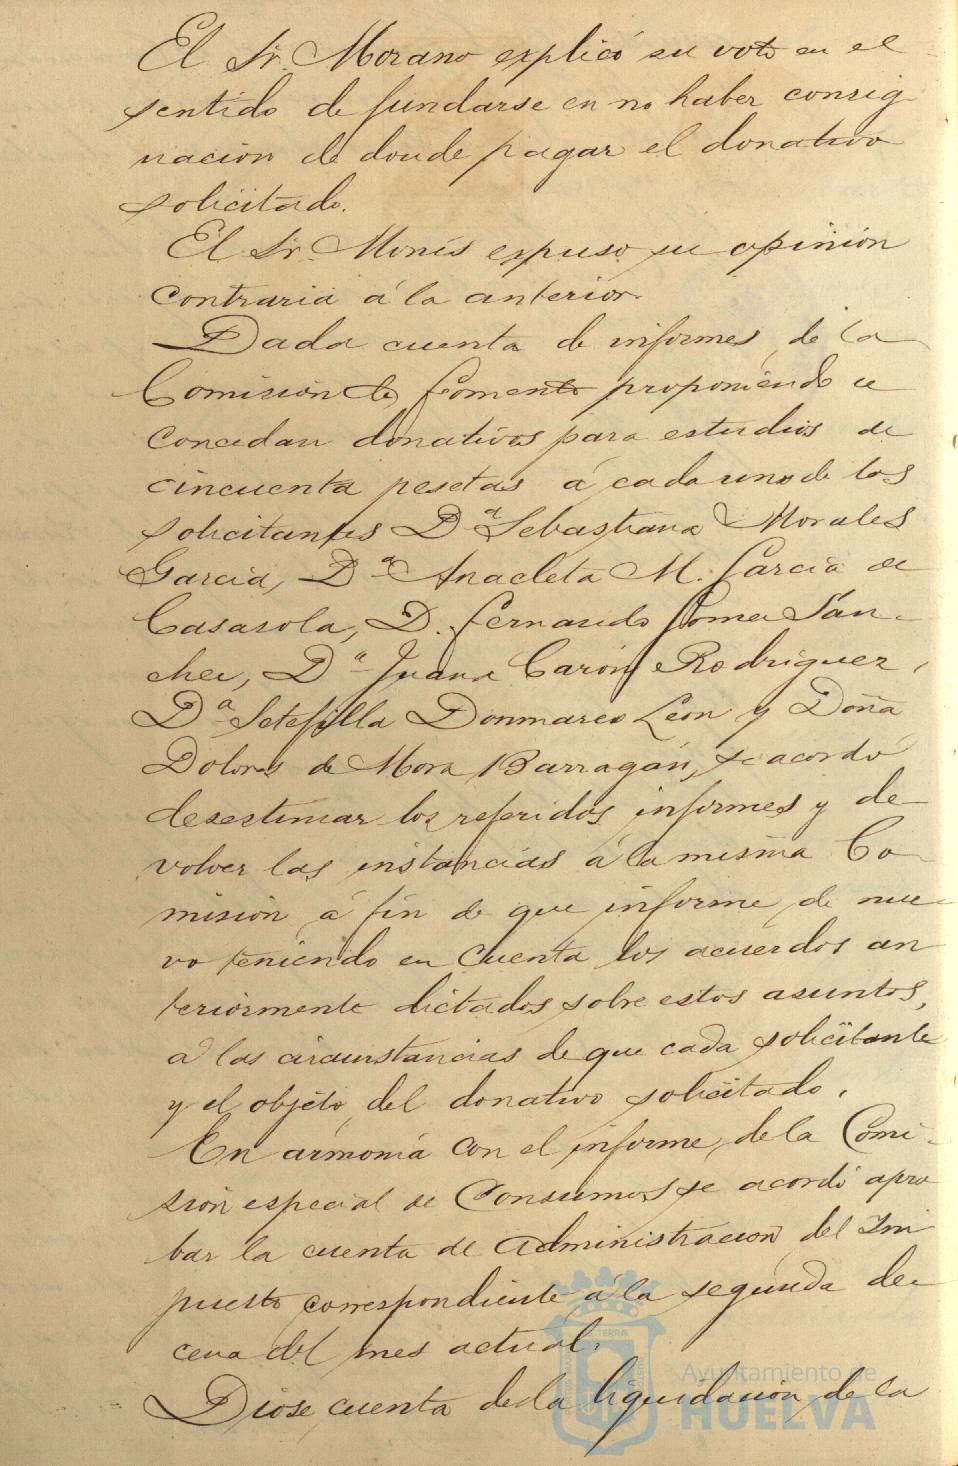 El Sr. Morano explicó su voto en el
sentido de fundarse en no haber consig-
nación de donde pagar el donativo
solicitado.
El Sr. Monís expuso su opinión
contraria á la anterior.
Dada cuenta de informes de la
Comisión de Fomento proponiendo se
concedan donativos para estudios de
cincuenta pesetas á cada uno de los
solicitantes Dª Sebastiana Morales
Garcia, Dª Anacleta M. Garcia de
Casasola, D. Fernando Gomez Sán-
chez, Dª Juana Carón Rodriguez,
Dª Setefilla Donmarco León y Doña
Dolores de Mora Barragán, se acordó
desestimar los referidos informes y de-
volver las instancias á la misma Co-
misión á fin de que informe de nue-
vo teniendo en cuenta los acuerdos an
teriormente dictados sobre estos asuntos,
á las circunstancias de que cada solicitante
y el objeto del donativo solicitado.
En armonía con el informe de la Comi-
sión especial de Consumos se acordó apro
bar la cuenta de Administracion del Im
puesto correspondiente á la segunda de-
cena del mes actual.
Diose cuenta de la liquidación de la
Ayuntamiento de
HUELVA